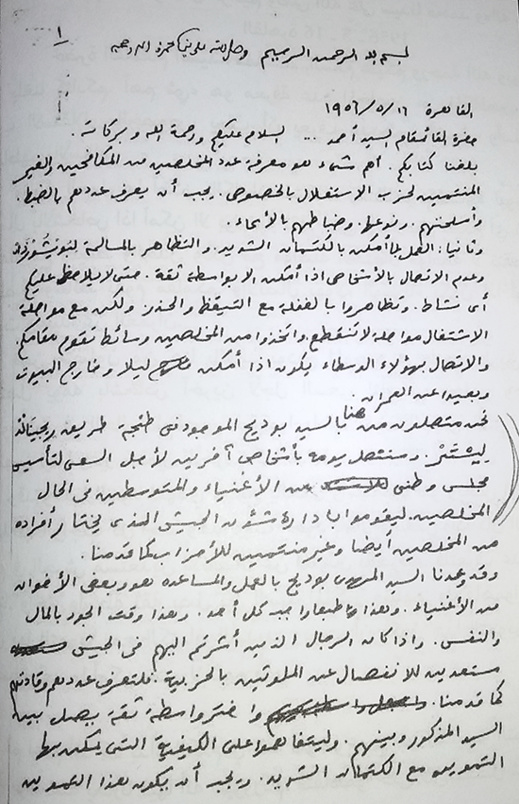 ١
بسم الله الرحمن الرحيم وصلى الله على سيدنا محمد وآله وصحبه
القاهرة ١٦/٥/١٩٥٦
حضرة القائمقام السيد أحمد ... السلام عليكم ورحمة الله وبركاته.
بلغنا كتابكم. أهم شيء هو معرفة عدد المخلصين من المكافحين والغير
المنتمين لحزب الاستقلال بالخصوص. يجب أن يعرف عددهم بالضبط.
وأسلحتهم. ونوعها. وضباطهم بالأسماء.
وثانيا: العمل ما أمكن بالكتمان الشديد. والتظاهر بالمسالمة
وعدم الاتصال بالأشخاص اذا أمكن الا بواسطة ثقة. حتى لا يلاحظ عليكم
أي نشاط. وتظاهروا بالغفلة مع التيقظ والحذر ولكن مع مواصلة
الاشتغال مواصلة لا تنقطع. واتخذوا من المخلصين وسائط تقوم مقامكم.
والاتصال بهؤلاء الوسطاء يكون اذا أمكن ليلا وخارج البيوت
وبعيدا عن العمران.
نحن متصلون من هنا بالسيد بوديح الموجود في طنجة طريق
ليشتنر. وسنتصل يومه بأشخاص آخرين لأجل السعي لتأسيس
مجلس وطني من الأغنياء والمتوسطين في الحال
المخلصين. ليقوموا بادارة شئون الجيش الذي يختار أفراده
من المخلصين أيضا وغير منتمين للأحزاب كما قدمنا.
وقد وعدنا السيد المهدي بوديح بالعمل والمساعده هو وبعض الأخوان
من الأغنياء. وهذا واجب كل أحد. وهذا وقت الجود بالمال
والنفس. واذا كان الرجال الذين أشرتم اليهم في الجيش
مستعدين للانفصال عن الملوثين بالحزبية. فلتعرف عددهم وقادتهم
كما قدمنا. واختر واسطة ثقة يصل بين
السيد المذكور وبينهم. وليتفاهموا على الكيفية التي يمكن بها
التموين مع الكتمان الشديد. ويجب أن يكون هذا التموين